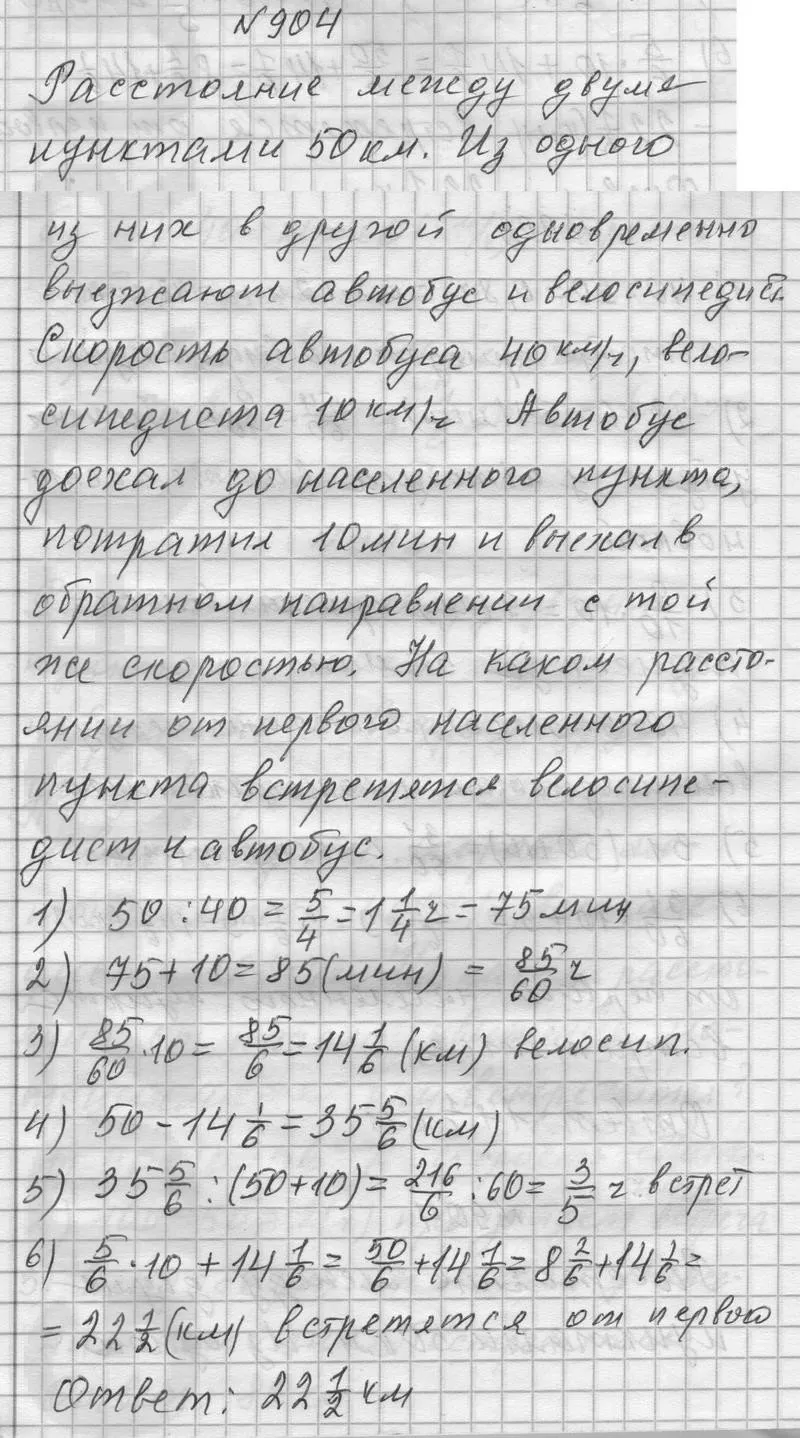 №904
Расстояние между двумя
пунктами 50 км. Из одного
из них в другой одновременно
выезжают автобус и велосипедист.
Скорость автобуса 40 км/ч, вело-
сипедиста 10 км/ч Автобус
доехал до населенного пункта,
потратил 10 мин и выехал в
обратном направлении с той
же скоростью. На каком рассто-
янии от первого населенного
пункта встретятся велосипе-
дист и автобус.
1) 50 : 40 = 5/4 = 1 1/4 ч = 75 мин
2) 75 + 10 = 85 (мин) = 85/60 ч
3) 85/60 · 10 = 85/6 = 14 1/6 (км) велосип.
4) 50 - 14 1/6 = 35 5/6 (км)
5) 35 5/6 : (50 + 10) = 216/6 : 60 = 3/5 ч встрет
6) 5/6 · 10 + 14 1/6 = 50/6 + 14 1/6 = 8 2/6 + 14 1/6 =
= 22 1/2 (км) встретятся от первого
Ответ: 22 1/2 км